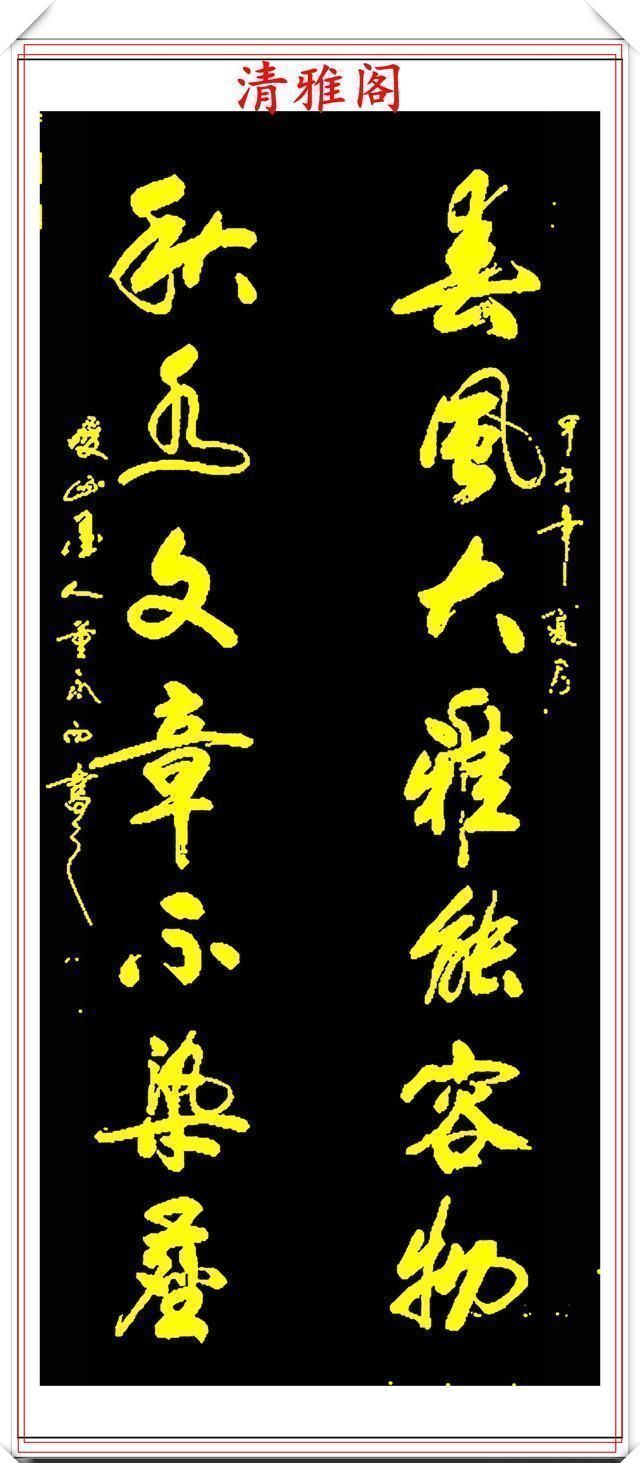 清雅阁
甲午年夏月
春風大雅能容物
秋水文章不染塵
墨人董永西書